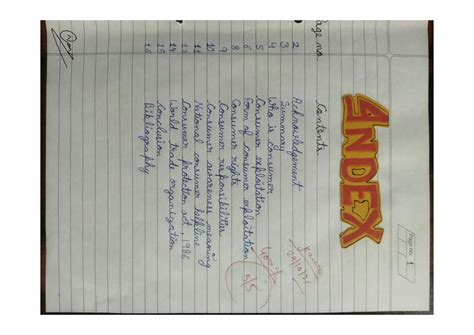 Page No. 1
INDEX
Page no. Contents
2 Acknowledgement
3 Summary
4 Who is consumer
5 Consumer exploitation
6 Form of consumer exploitation
8 Consumer rights
9 Consumer responsibilities
10 Consumer awareness meaning
11 National consumer helpline
12 Consumer protection act, 1986
14 World trade organization
15 Conclusion
16 Bibliography
Good
5/5